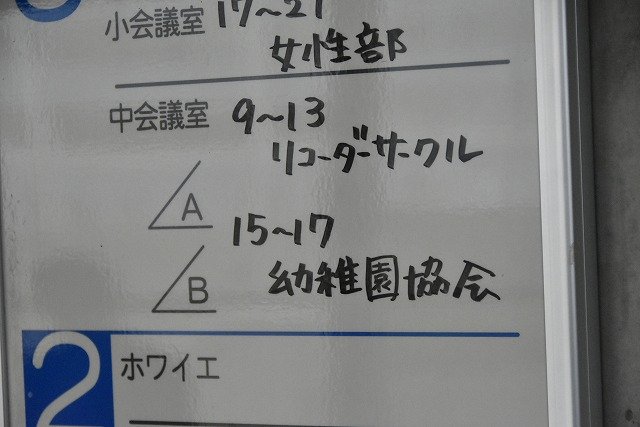 小会議室 17～21
女性部
中会議室 9～13
リコーダーサークル
A
15～17
B
幼稚園協会
2
ホワイエ